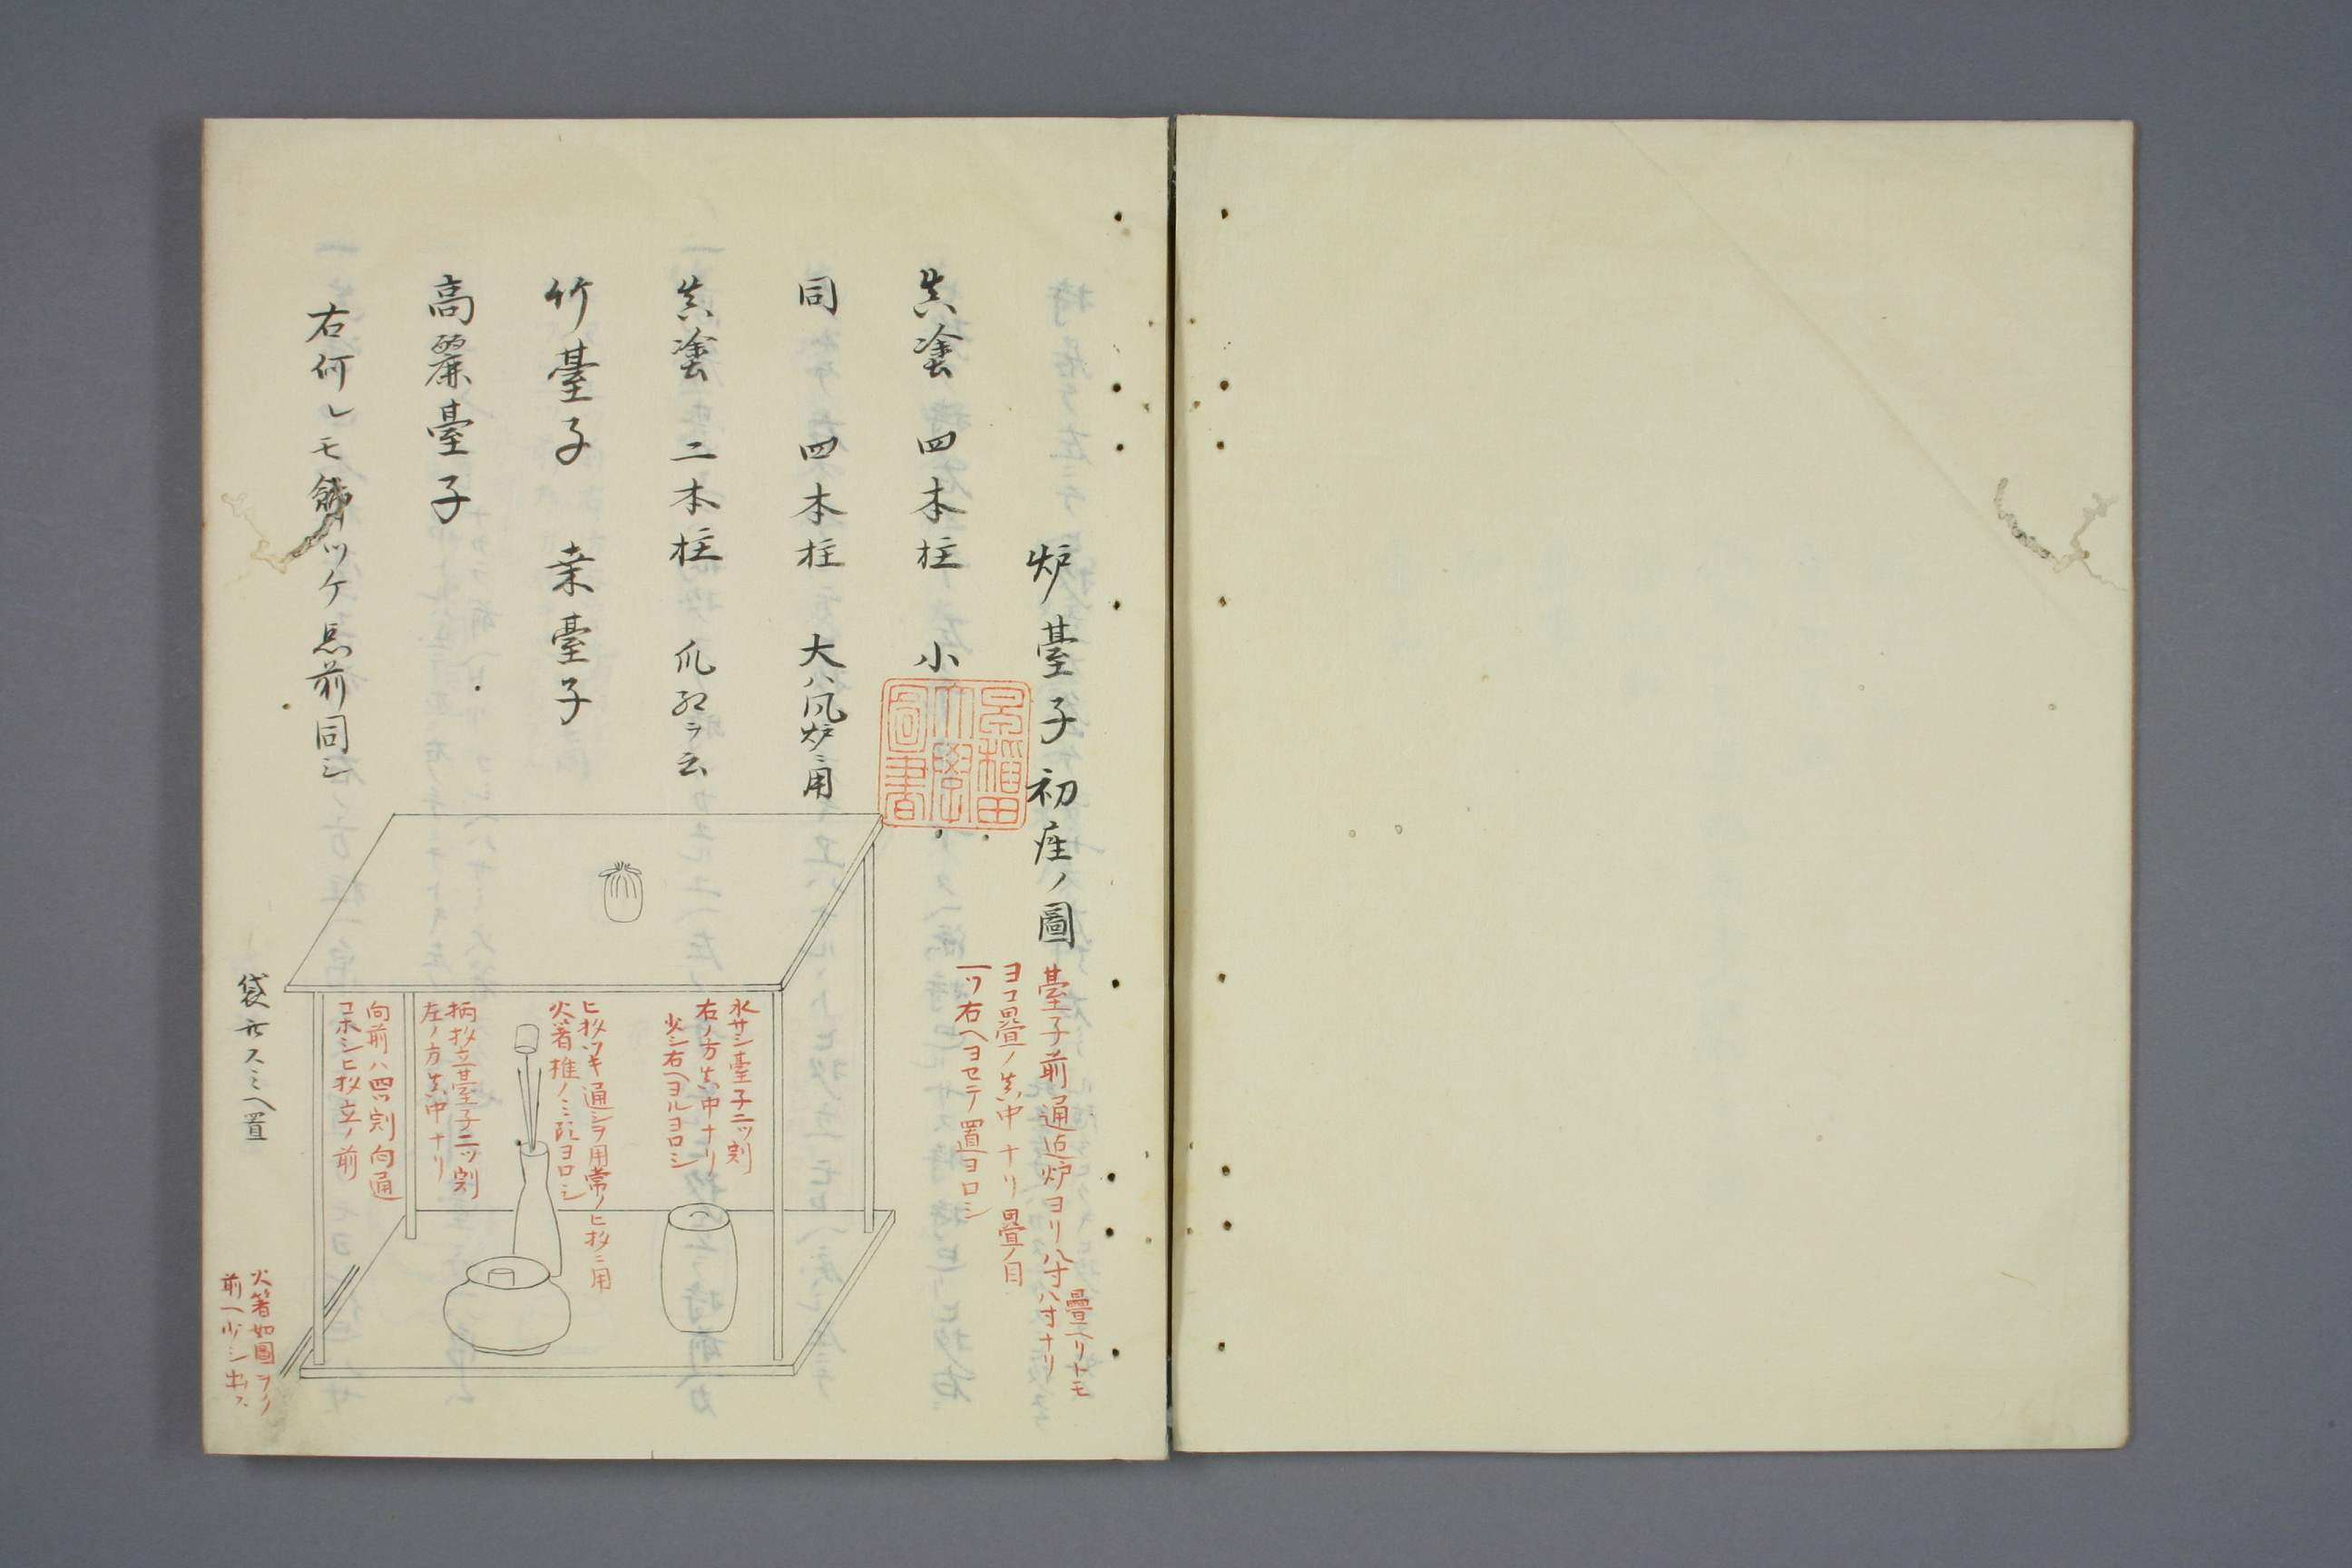 炉臺子初座ノ圖
臺子前通迄炉ヨリ八寸八寸ナリ
疊ヘリトモ
ヨコ疊ノ真中ナリ疊ノ目
一ツ右ヘヨセテ置ヨロシ
早稲田
大學
圖書
真塗 四本柱 小
同 四本柱 大ハ風炉ニ用
真塗 二本柱 爪紅ラ云
竹臺子 桒臺子
高麗臺子
右何レモ飾リツケ点前同シ
水サシ臺子ニツ割
右ノ方真中ナリ
少シ右ヘヨルヨロシ
ヒ杓ツキ通シヲ用常ノヒ杓ニ用
火箸椎ノミ形ヨロシ
柄杓立臺子ニツ割
左ノ方真中ナリ
向前ハ四ツ割向通
コホシヒ杓立ノ前
袋ハスミヘ置
火箸如圖フノ
前ヘ少シ出ス